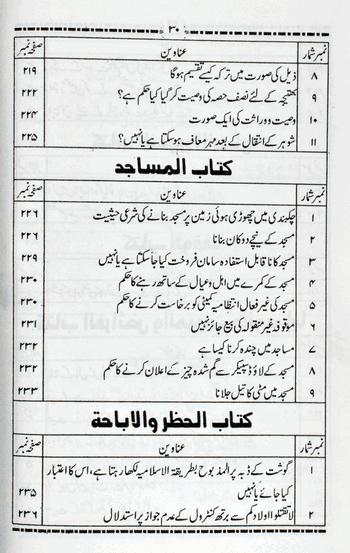 ۳۰
نمبر شمار عناوین صفحہ نمبر
۸ ذیل کی صورت میں ترکہ کیسے تقسیم ہوگا ۲۱۹
۹ بھتیجہ کے لئے نصف حصہ کی وصیت کر گیا کیا حکم ہے؟ ۲۲۲
۱۰ وصیت و وراثت کی ایک صورت ۲۲۴
۱۱ شوہر کے انتقال کے بعد مہر معاف ہوسکتا ہے یا نہیں؟ ۲۲۵
کتاب المساجد
نمبر شمار عناوین صفحہ نمبر
۱ چکبندی میں چھوڑی ہوئی زمین پر مسجد بنانے کی شرعی حیثیت ۲۲۶
۲ مسجد کے نیچے دوکان بنانا ۲۲۶
۳ مسجد کا ناقابل استفادہ سامان فروخت کیا جاسکتا ہے یا نہیں ۲۲۹
۴ مسجد کے کمرے میں اہل وعیال کے ساتھ رہنے کا حکم ۲۳۰
۵ مسجد کی غیر فعال انتظامیہ کمیٹی کو برخاست کرنے کا حکم ۲۳۰
۶ موقوفہ غیر منقولہ کی بیع جائز نہیں ۲۳۱
۷ مساجد میں چندہ کرنا کیسا ہے ۲۳۲
۸ مسجد کے لاؤڈ سپیکر سے گم شدہ چیز کے اعلان کرنے کا حکم ۲۳۲
۹ مسجد میں مٹی کا تیل جلانا ۲۳۳
کتاب الحظر والاباحة
نمبر شمار عناوین صفحہ نمبر
۱ گوشت کے ڈبہ پر المذبوح بطریقۃ الاسلامیہ لکھا رہتا ہے، اس کا اعتبار
کیا جائے یا نہیں ۲۳۵
۲ لا تقتلوا اولادکم سے برتھ کنٹرول کے عدم جواز پر استدلال ۲۳۶